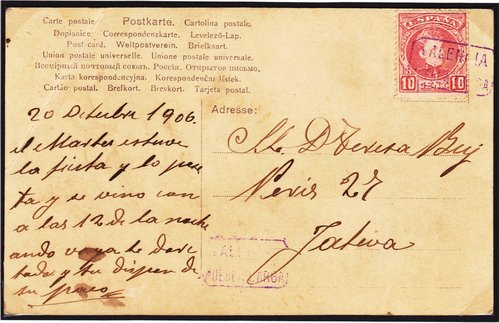 Carte postale. Postkarte. Cartolina postale.
Dopisnice. Correspondenzkarte. Levelező-Lap.
Post card. Weltpostverein. Briefkaart.
Union postale universelle. Unione postale universale.
Всемірный почтовый союзъ. Россія. Открытое письмо.
Karta korespondencyjna. Korespondenčni lístek.
Cartão postal. Brefkort. Brevkort. Tarjeta postal.
ESPAÑA
10 10
VALENCIA
20 Octubre 1906.
el Martes estuve
la fiesta y lo
ta y se vino con
a las 12 de la noche
ando
tadas y tu dispon de
su
Adresse:
Sta. Dª Teresa
27
Jativa
PUEBLA LARGA